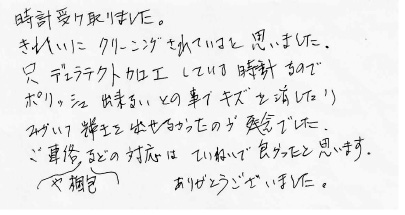 時計受け取りました。
きれいにクリーニングされていると思いました。
只 デュラテクト加工している時計なので
ポリッシュ出来ないとの事でキズを消したり
みがいて輝きを出せなかったのが残念でした。
ご連絡などの対応はていねいで良かったと思います。
や梱包 ありがとうございました。